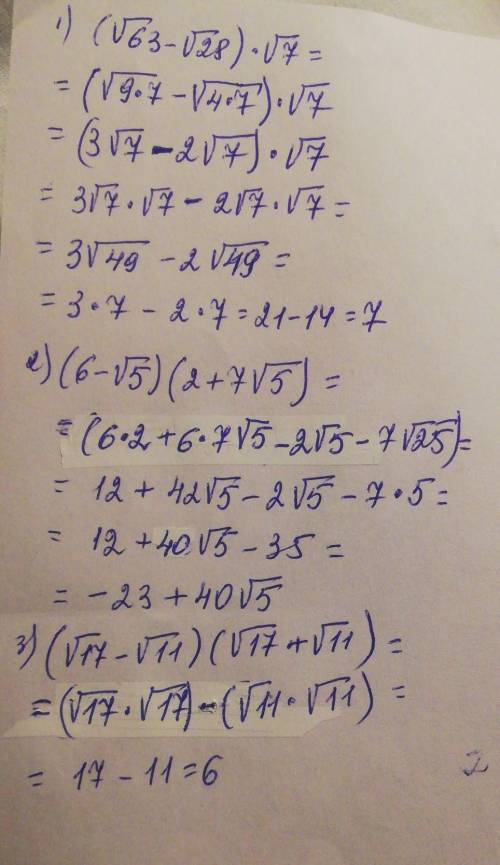 1) (√63-√28)·√7=
= (√9·7 - √4·7)·√7
= (3√7 - 2√7)·√7
= 3√7·√7 - 2√7·√7=
= 3√49 - 2√49=
= 3·7 - 2·7=21-14=7
2) (6-√5)(2+7√5)=
= (6·2+6·7√5-2√5-7√25)=
= 12+42√5-2√5-7·5=
= 12+40√5-35=
= -23+40√5
3) (√17-√11)(√17+√11)=
= (√17·√17)-(√11·√11)=
= 17-11=6